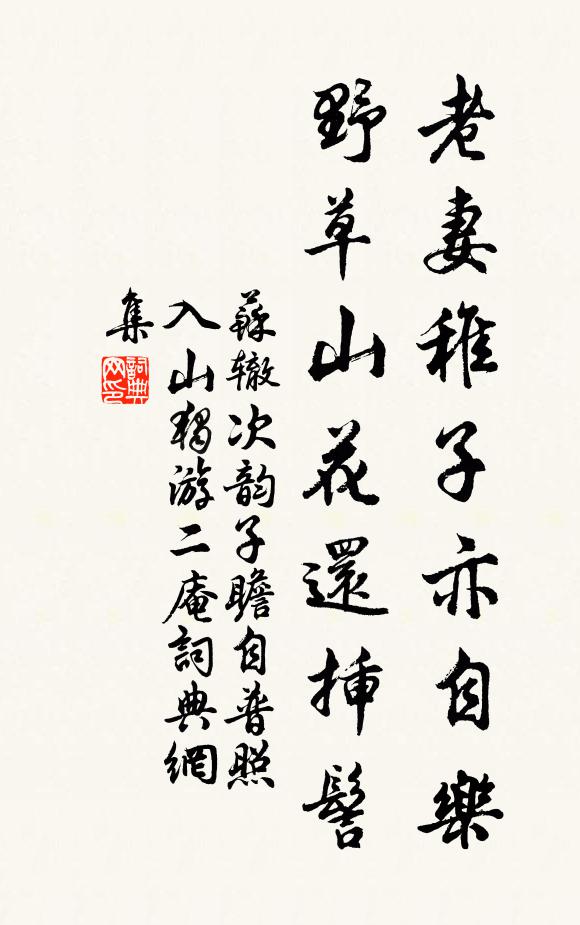 老妻稚子亦自樂
野草山花還插髻
蘇辙次韵子瞻自普照
入山獨游二庵詞典網
集
詞典網印